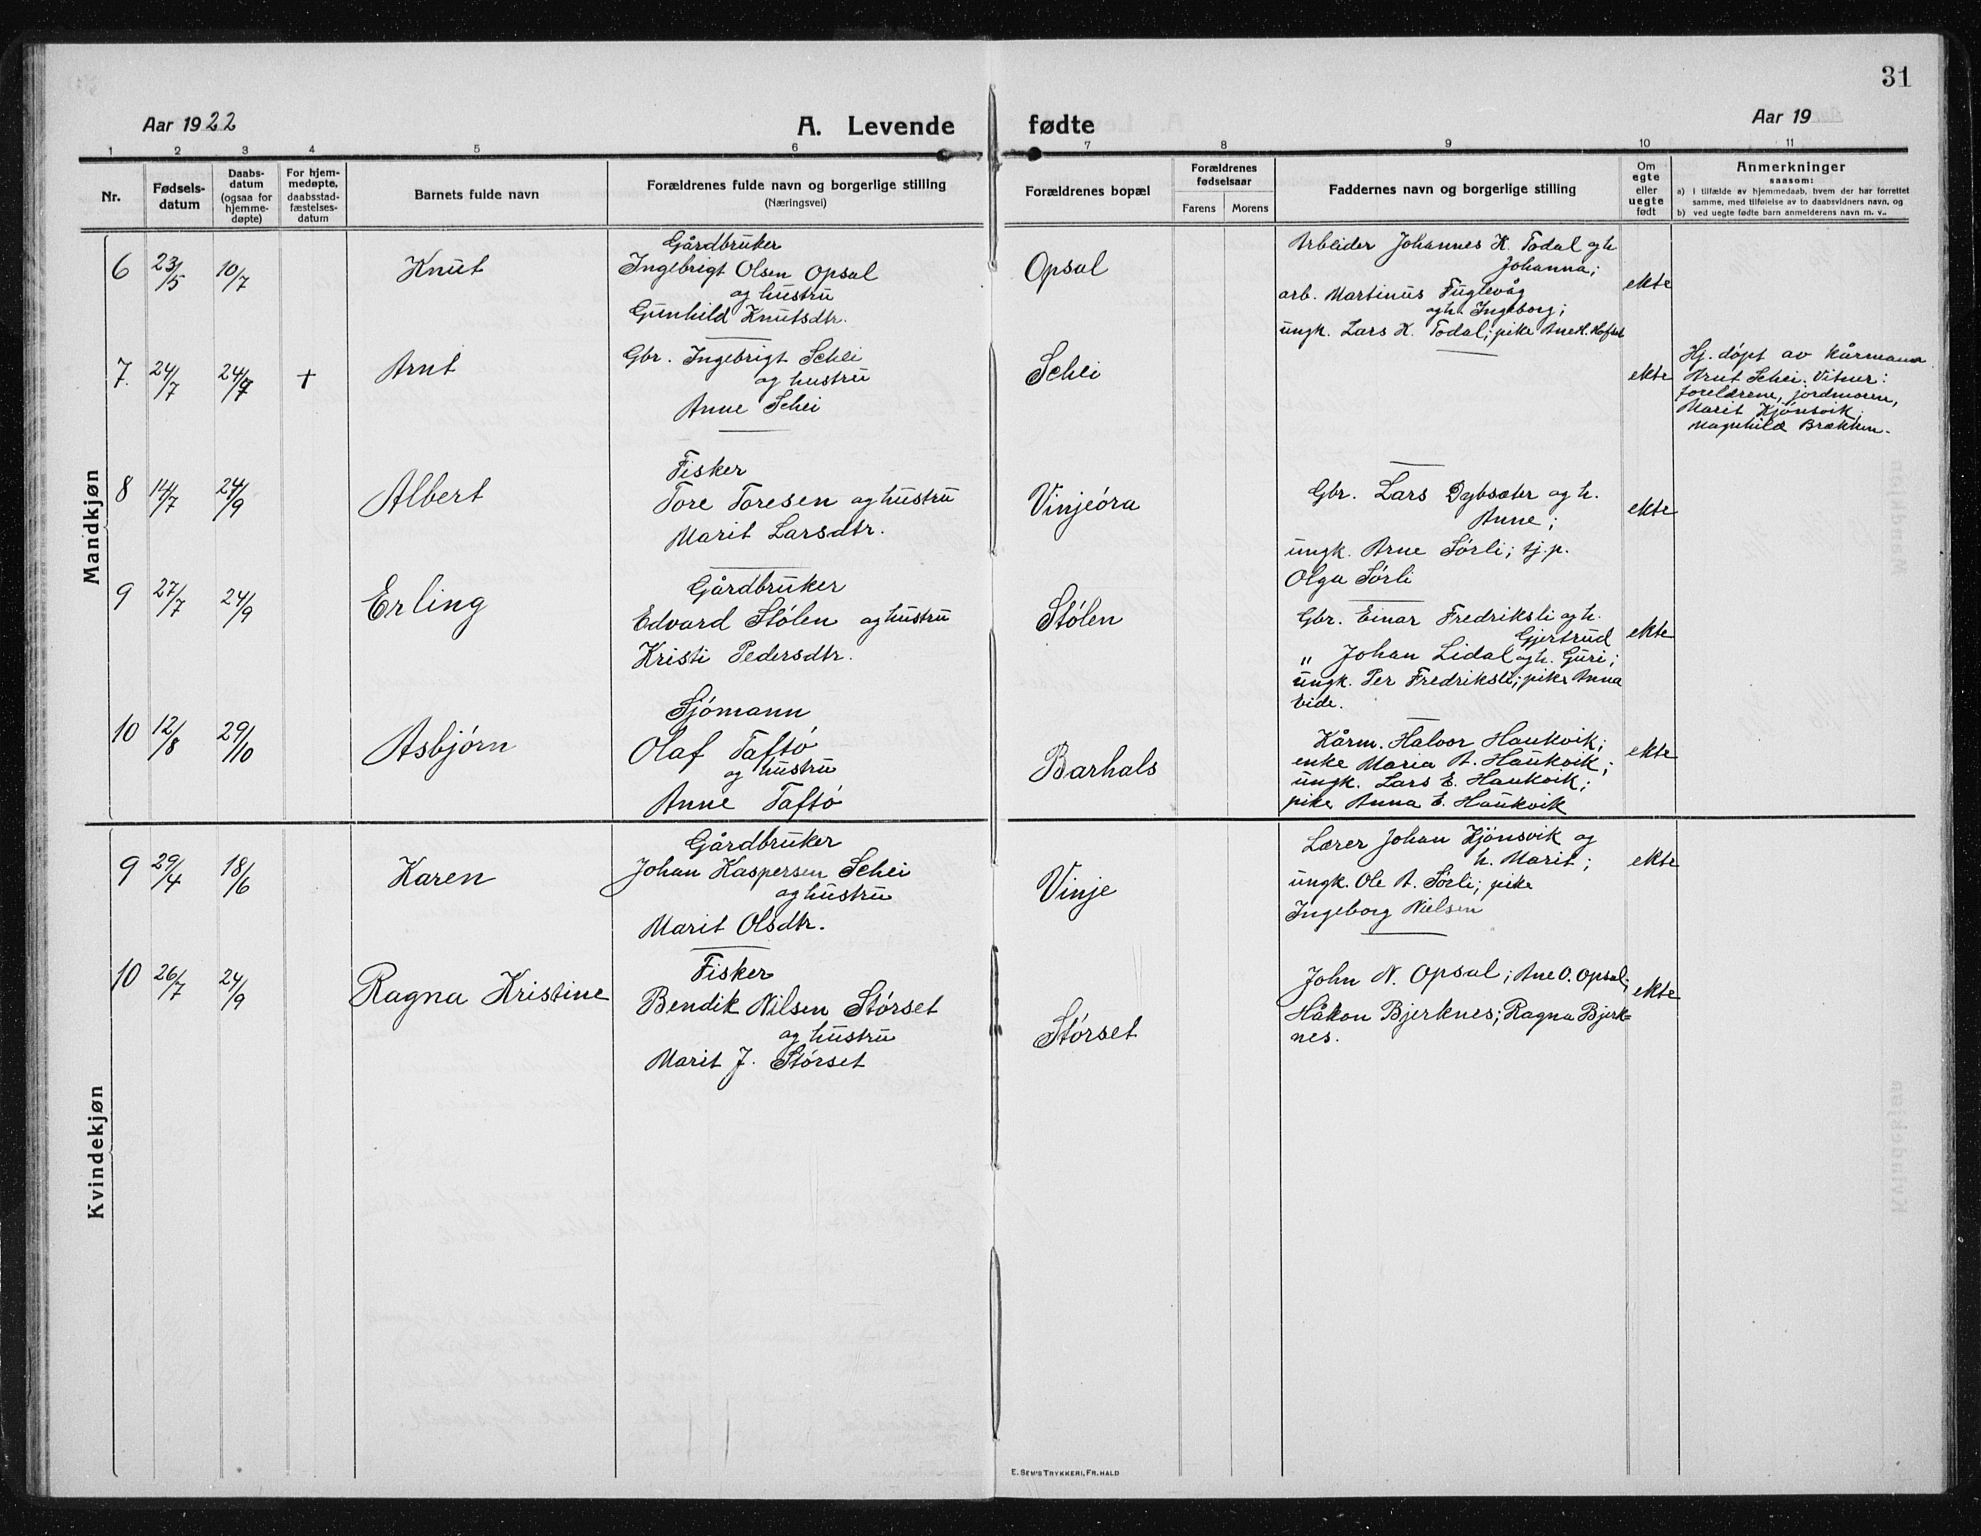 31
Aar 1922
A. Levende fødte
Aar 19
1 2 3 4 5 6 7 8 9 10 11
Nr.
Fødsels-
datum
Daabs-
datum
(ogsaa for
hjemme-
døpte)
For hjem-
medøpte,
daabsstad-
fæstelses-
datum
Barnets fulde navn
Forældrenes fulde navn og borgerlige stilling
(Næringsvei)
Forældrenes bopæl
Forældrenes
fødselsaar
Farens Morens
Faddernes navn og borgerlige stilling
Om
egte
eller
uegte
født
Anmerkninger
saasom:
a) i tilfælde av hjemmedaab, hvem der har forrettet
samme, med tilføielse av to daabsvidners navn, og
b) ved uegte fødte barn anmelderens navn m. v..
Mandkjøn
6 23/5 10/7 Knut
Gårdbruker
Ingebrigt Olsen Opsal
og hustru
Gunhild Knutsdtr.
Opsal
Arbeider Johannes K. Todal og h.
Johanna;
arb. Martinus Fuglevåg
og h. Ingeborg;
ungk. Lars K. Todal; pike Ane H. Hafset
ekte
7. 24/7 24/7 + Arnt
Gbr. Ingebrigt Schei
og hustru
Anne Schei
Schei
ekte
Hj. døpt av kårmann
Arnt Schei. Vitner:
foreldrene, jordmoren,
Marit Kjønsvik,
Magnhild Brækken.
8 14/7 24/9 Albert
Fisker
Tore Toresen og hustru
Marit Larsdtr.
Vinjeøra
Gbr. Lars Dybsæter og h.
Anne;
ungk. Arne Sørli; tj.p.
Olga Sørli
ekte
9 27/7 24/9 Erling
Gårdbruker
Edvard Stølen og hustru
Kristi Pedersdtr.
Stølen
Gbr. Einar Fredriksli og h.
Gjertrud
" Johan Lidal og h. Guri;
ungk. Per Fredriksli; pike Anna
Eide.
ekte
10 12/8 29/10 Asbjørn
Sjømann
Olaf Taftø
og hustru
Anne Taftø
Barhals
Kårm. Halvor Haukvik;
enke Maria A. Haukvik;
ungk. Lars E. Haukvik;
pike Anna E. Haukvik
ekte
Kvindekjøn
9 29/4 18/6 Karen
Gårdbruker
Johan Kaspersen Schei
og hustru
Marit Olsdtr.
Vinje
Lærer Johan Kjønsvik og
h. Marit;
ungk. Ole A. Sørli; pike
Ingeborg Nielsen
ekte
10 26/7 24/9 Ragna Kristine
Fisker
Bendik Nilsen Størset
og hustru
Marit J. Størset
Størset
John N. Opsal; Ane O. Opsal;
Håkon Bjerknes; Ragna Bjerk=
nes.
ekte
E. SEM'S TRYKKERI, FR. HALD